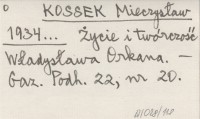 o KOSSEK Mieczysław
1934... Życie i twórczość
Władysława Orkana. —
Gaz. Podh. 22, nr 20.